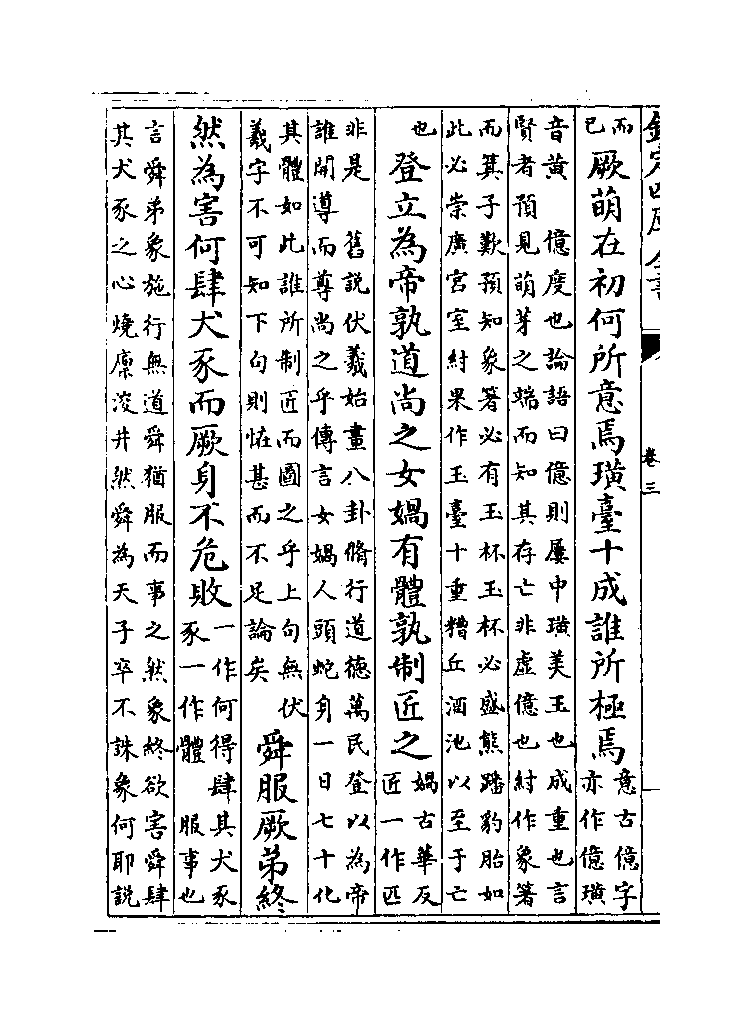 欽定四庫全書 卷三
而
已
厥萌在初何所意焉璜臺十成誰所極焉
意古億字
亦作億璜
音黄 億度也論語曰億則屢中璜美玉也成重也言
賢者預見萌芽之端而知其存亡非虚億也紂作象箸
而箕子歎預知象箸必有玉杯玉杯必盛熊蹯豹胎如
此必崇廣宮室紂果作玉臺十重糟丘酒池以至于亡
也
登立為帝孰道尚之女媧有體孰制匠之
媧古華反
匠一作匹
非是 舊說伏羲始畫八卦脩行道德萬民登以為帝
誰開導而尊尚之乎傳言女媧人頭蛇身一日七十化
其體如此誰所制匠而圖之乎上句無伏
羲字不可知下句則恠甚而不足論矣
舜服厥弟終
然為害何肆犬豕而厥身不危敗
一作何得肆其犬豕
豕一作體 服事也
言舜弟象施行無道舜猶服而事之然象終欲害舜肆
其犬豕之心燒廩浚井然舜為天子卒不誅象何耶說